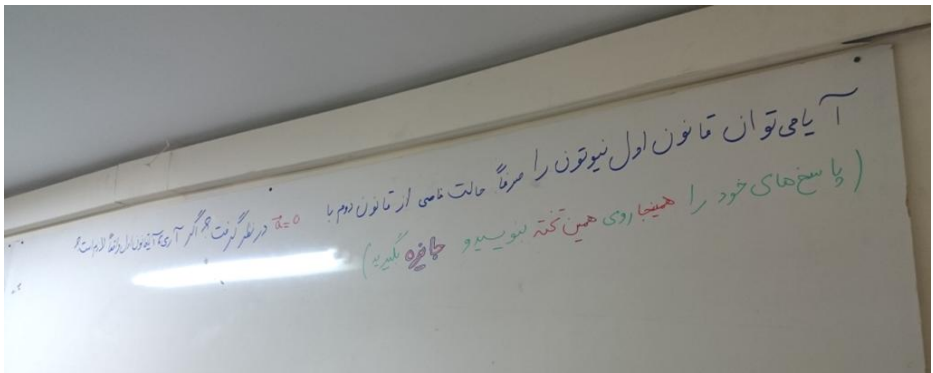 آیا می‌توان قانون اول نیوتون را صرفاً حالت خاصی از قانون دوم با a⃗=0 در نظر گرفت؟ اگر آری، آیا قانون اول واقعاً لازم است؟
(پاسخ‌های خود را همینجا روی همین تخته بنویسید و جایزه بگیرید)